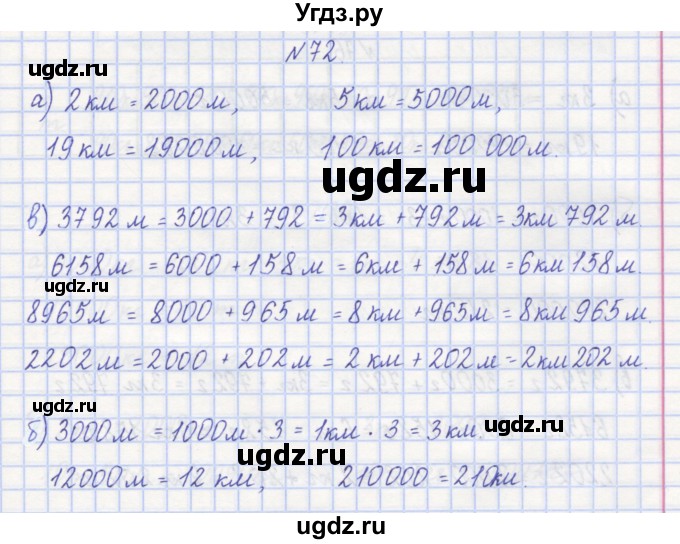 Угдз.ру
№72
ugdz.ru
а) 2км = 2000м, 5км = 5000м,
19км = 19000м, 100км = 100 000м.
ugdz.ru
в) 3792м = 3000 + 792 = 3км + 792м = 3км 792м
6158м = 6000 + 158м = 6км + 158м = 6км 158м.
ugdz.ru
8965м = 8000 + 965м = 8км + 965м = 8км 965м.
2202м = 2000 + 202м = 2км + 202м = 2км 202м.
ugdz.ru
б) 3000м = 1000м · 3 = 1км · 3 = 3км.
ugdz.ru
12000м = 12 км, 210000 = 210км.
ugdz.ru
ugdz.ru